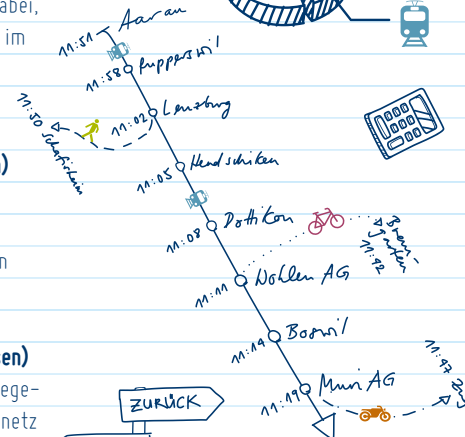 abei,
im
)
n
sen)
ege-
netz
11:51 Aarau
11:58 Rupperswil
11:02 Lenzburg
11:30 Schafisheim
11:05 Hendschiken
11:08 Dottikon
Brem-
garten
11:42
11:11 Wohlen AG
11:14 Boswil
11:19 Muri AG
11:47 Zug
ZURÜCK